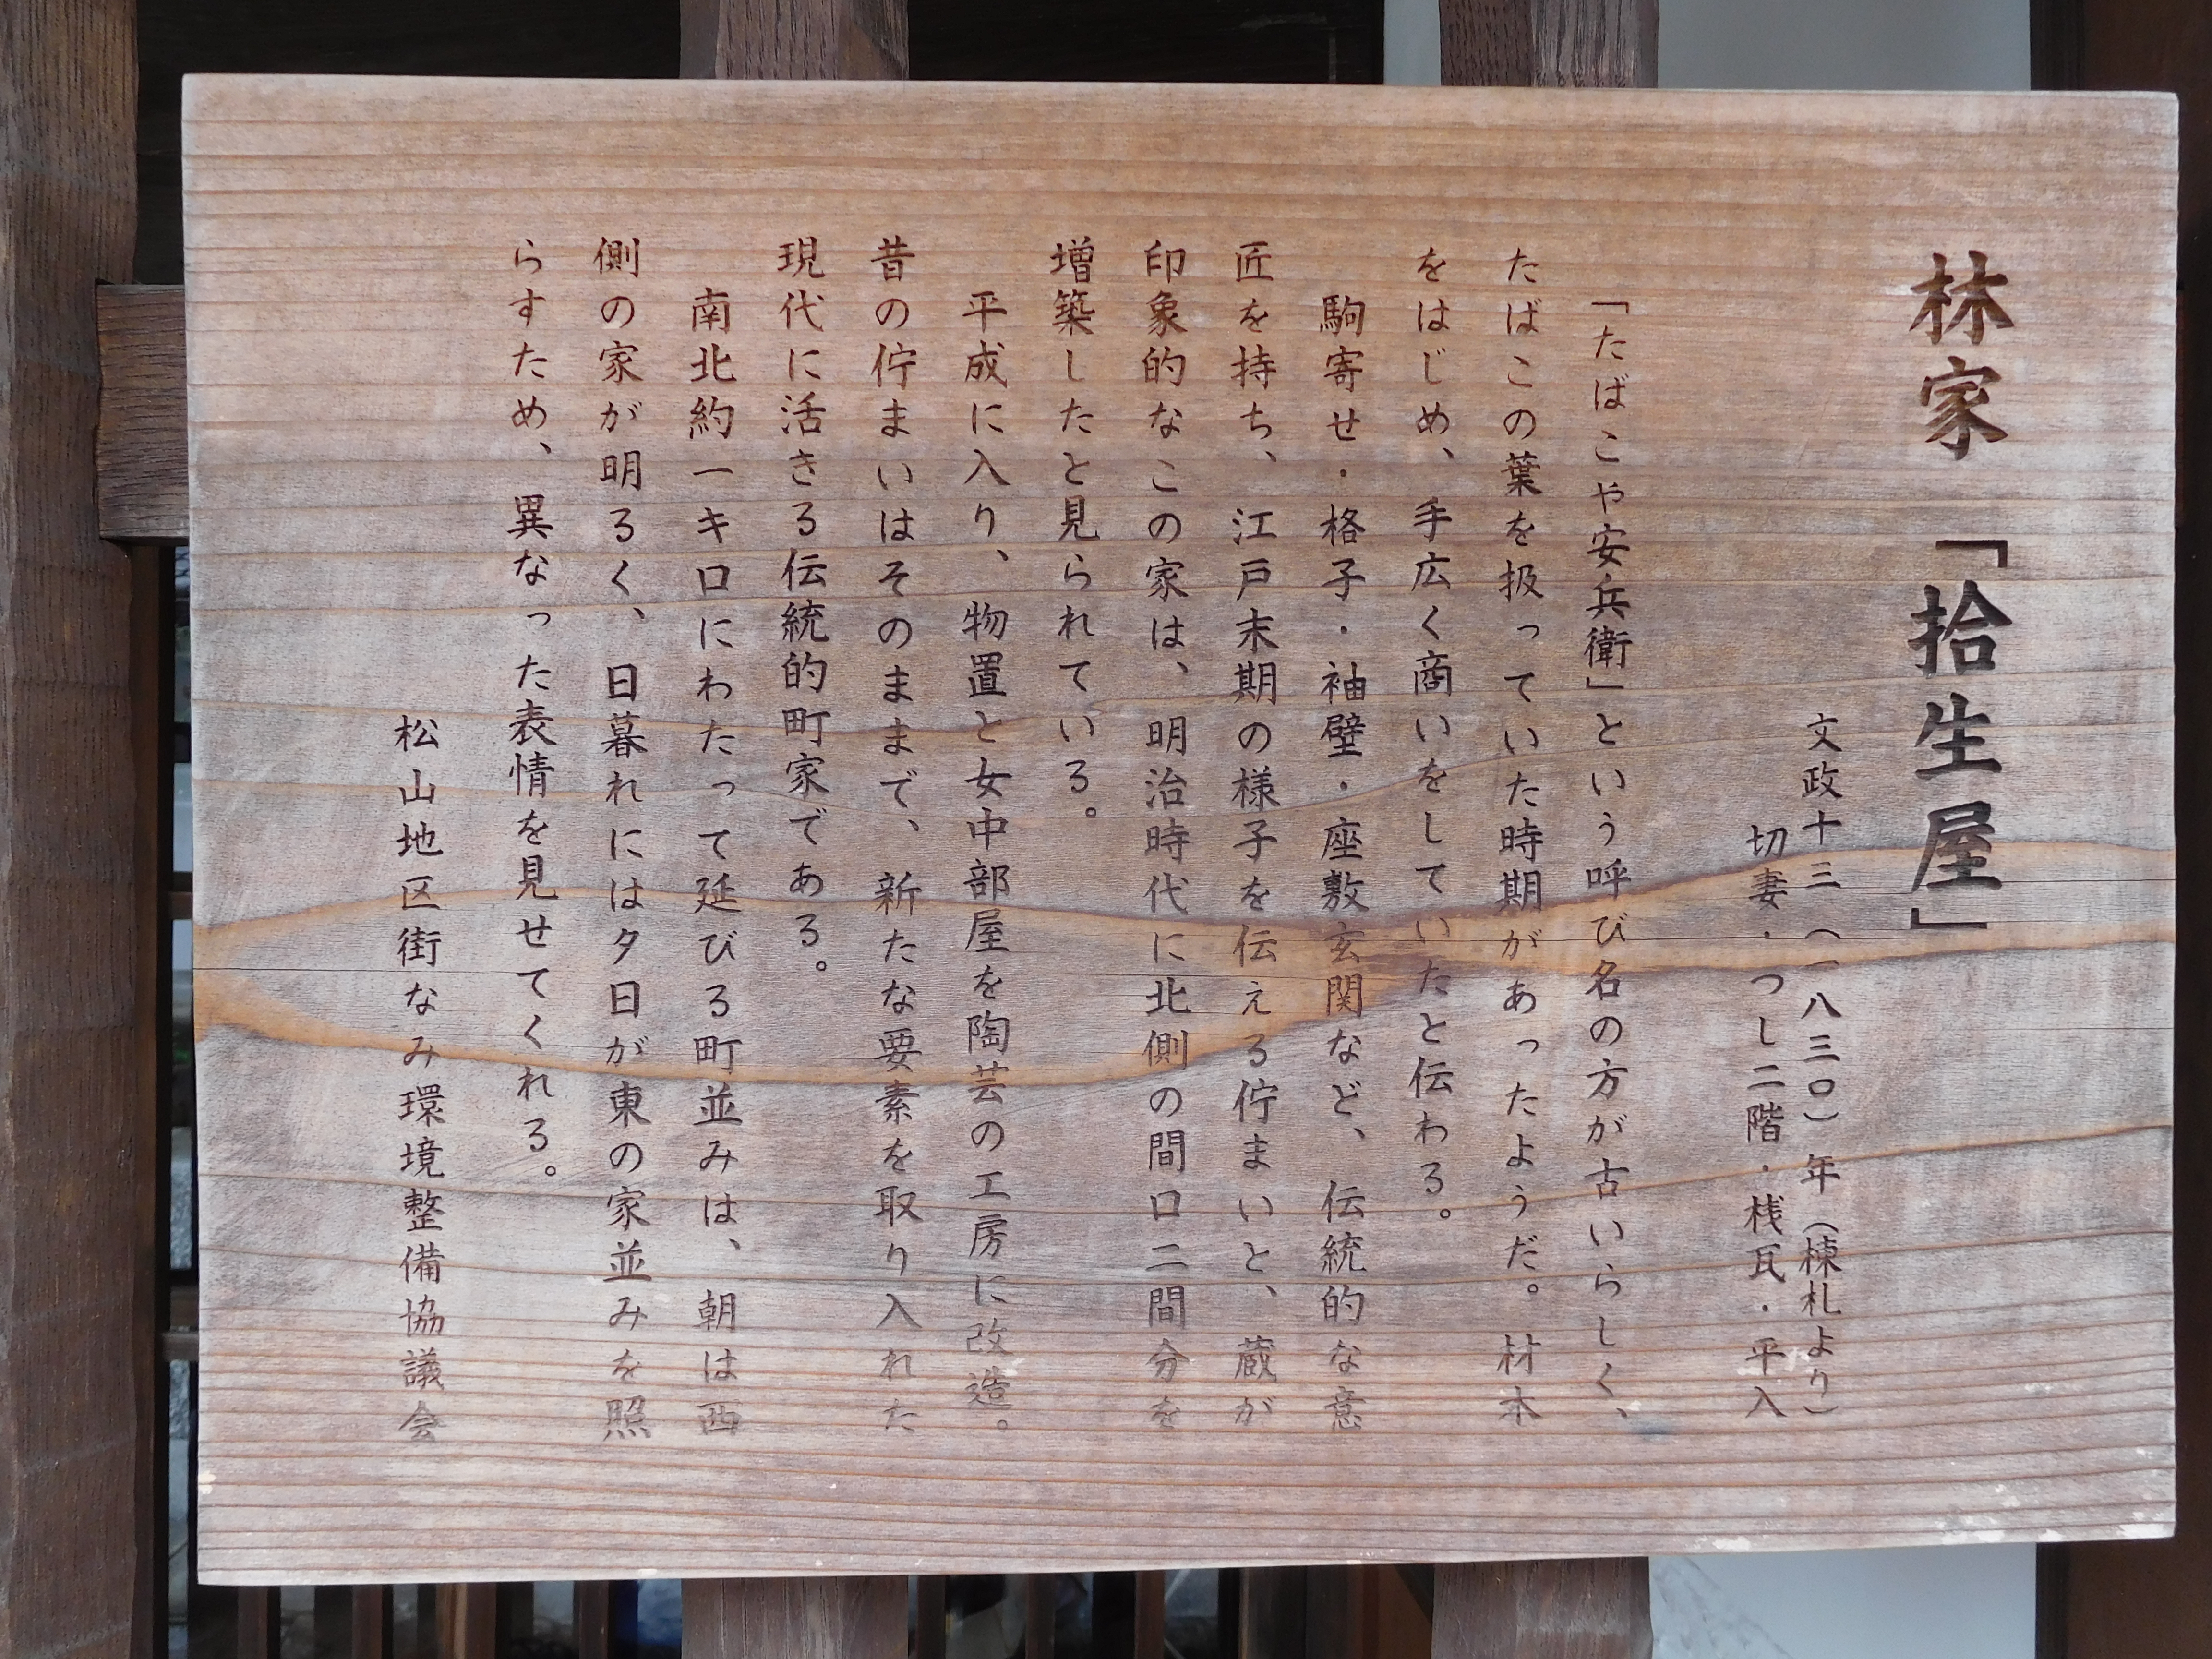 林家「拾生屋」
文政十三(一八三〇)年(棟札より)
切妻・つし二階・桟瓦・平入
「たばこや安兵衛」という呼び名の方が古いらしく、
たばこの葉を扱っていた時期があったようだ。材木
をはじめ、手広く商いをしていたと伝わる。
駒寄せ・格子・袖壁・座敷玄関など、伝統的な意
匠を持ち、江戸末期の様子を伝える佇まいと、蔵が
印象的なこの家は、明治時代に北側の間口二間分を
増築したと見られている。
平成に入り、物置と女中部屋を陶芸の工房に改造。
昔の佇まいはそのままで、新たな要素を取り入れた
現代に活きる伝統的町家である。
南北約一キロにわたって延びる町並みは、朝は西
側の家が明るく、日暮れには夕日が東の家並みを照
らすため、異なった表情を見せてくれる。
松山地区街なみ環境整備協議会